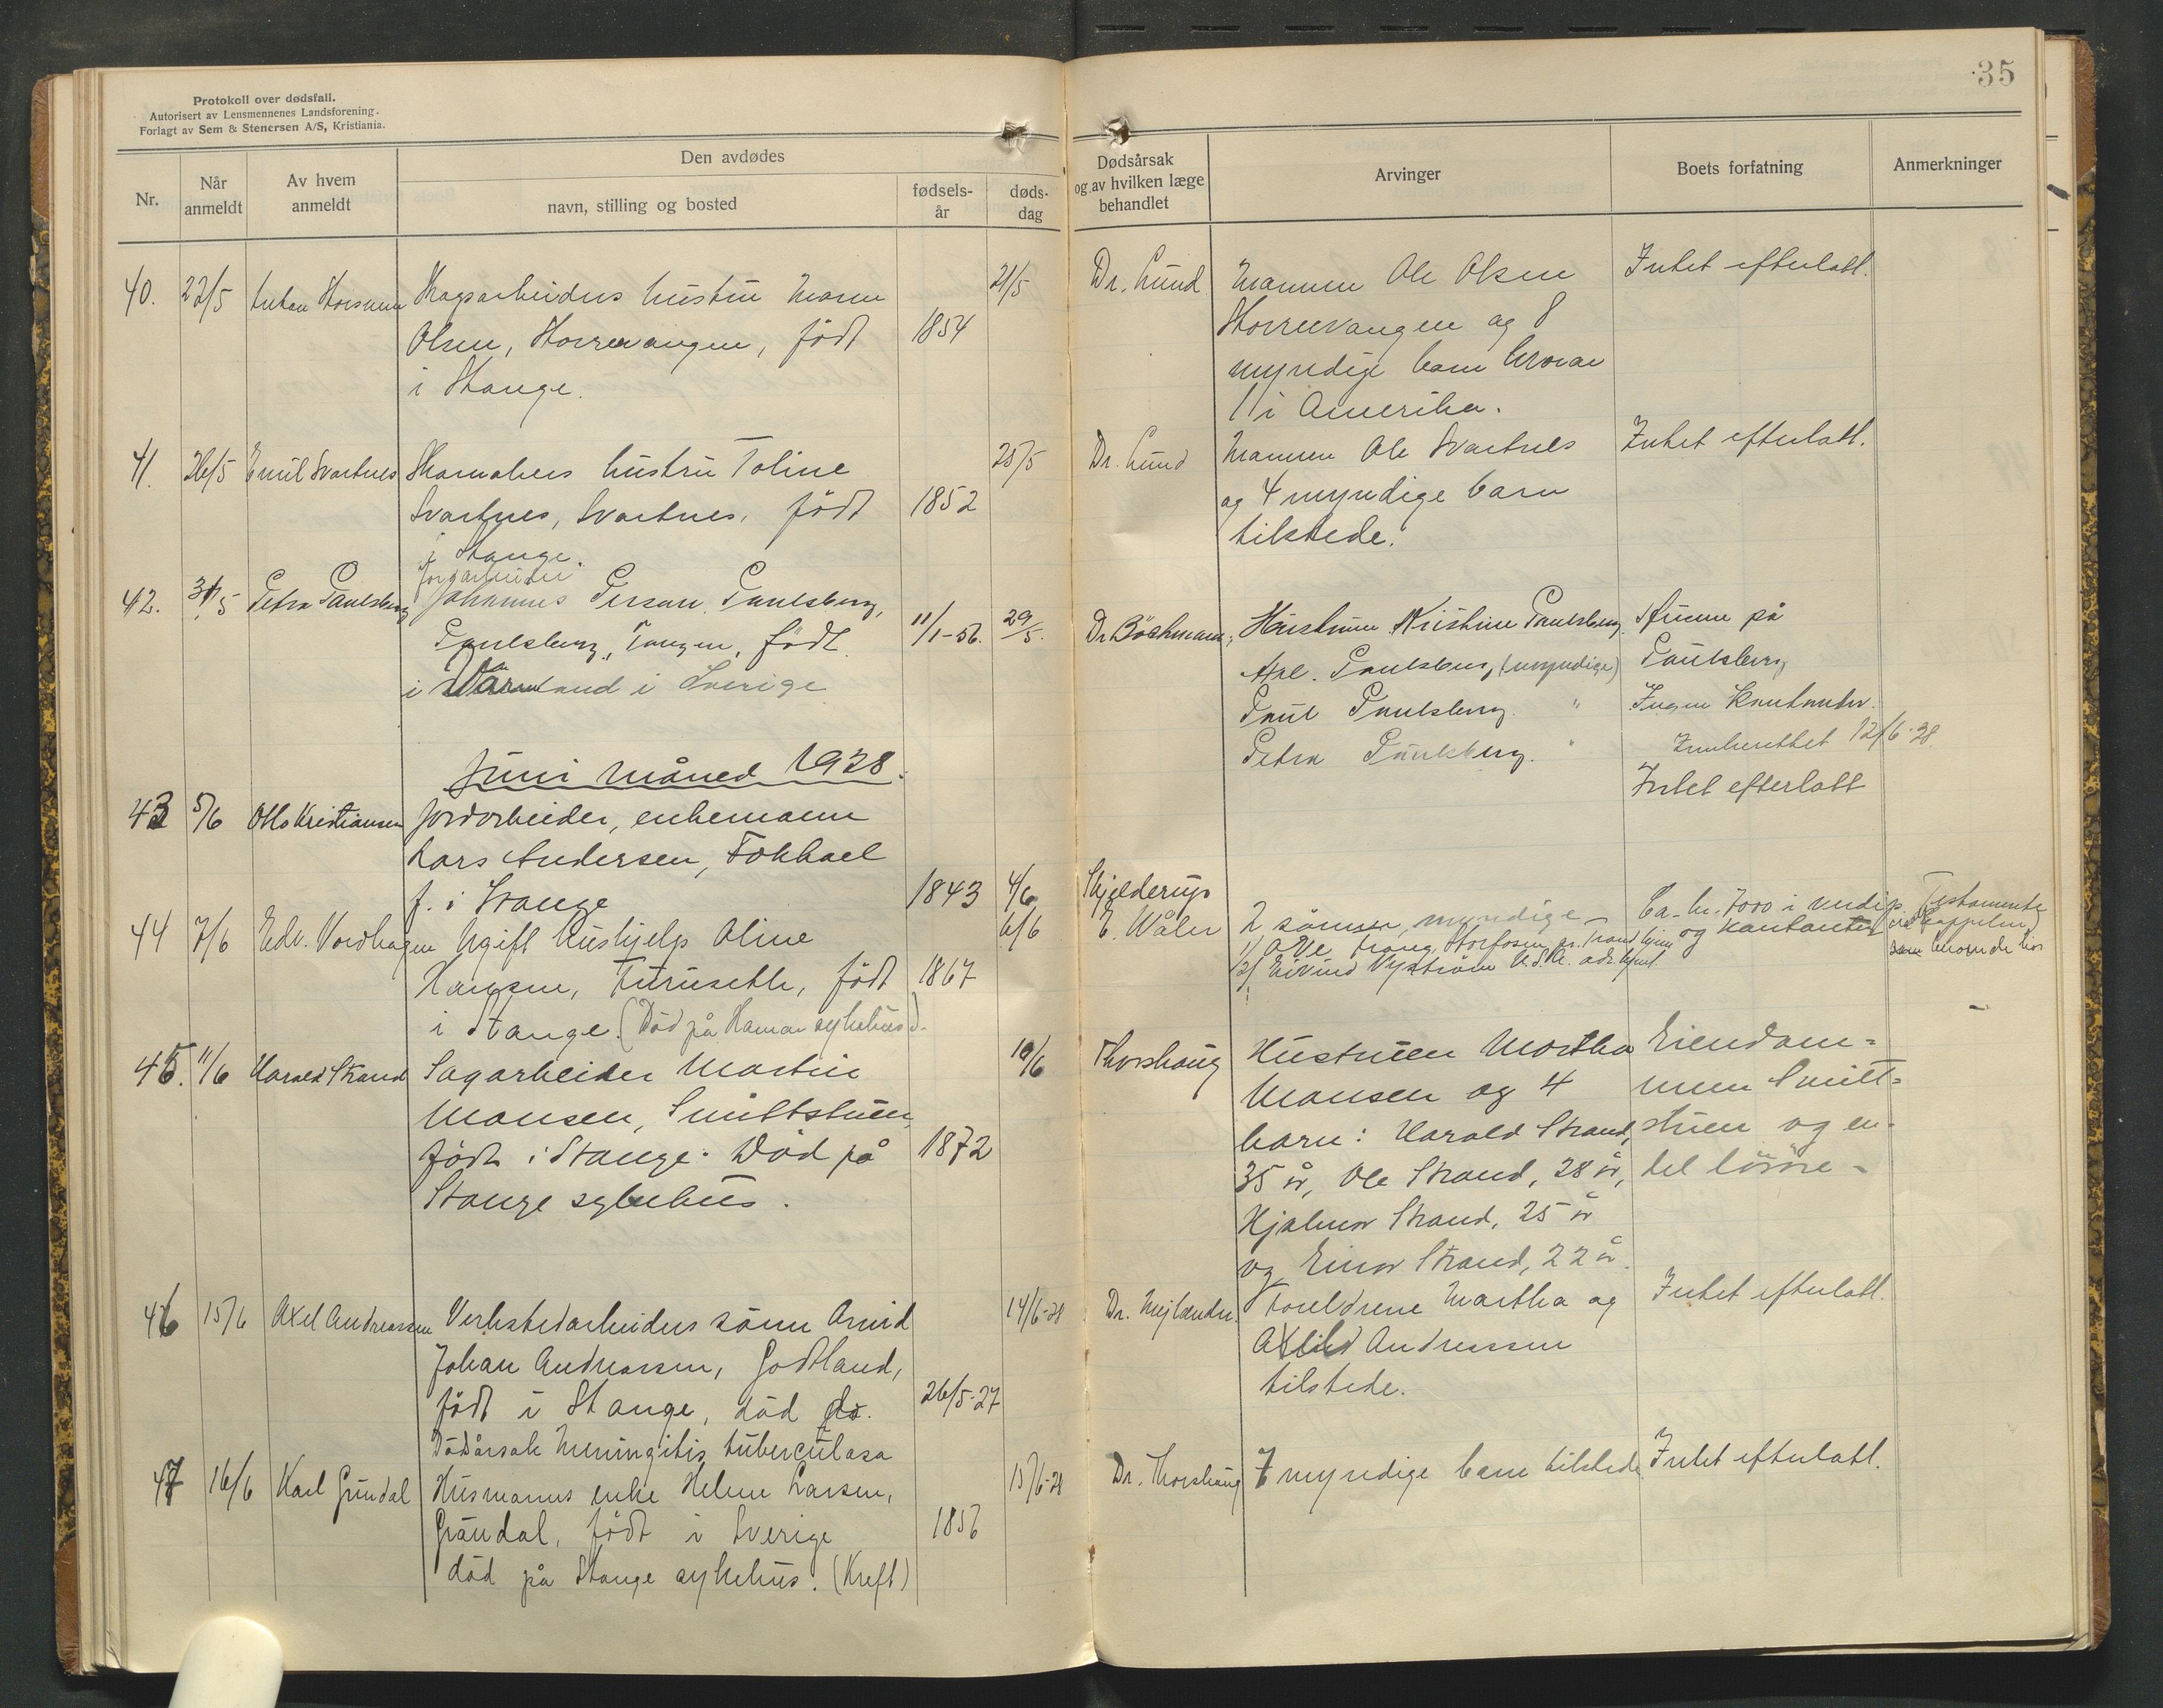 35
Protokoll over dødsfall.
Autorisert av Lensmennenes Landsforening.
Forlagt av Sem & Stenersen A/S, Kristiania.
Nr.
Når anmeldt
Av hvem anmeldt
Den avdødes
navn, stilling og bosted
fødsels-år
døds-dag
Dødsårsak og av hvilken læge behandlet
Arvinger
Boets forfatning
Anmerkninger
40. 22/5 Skogsarbeiders hustru Maren 21/5 Dr. Lund Mannen Ole Olsen Intet efterlatt.
Olsen, Storrvangen, født 1854 Storrvangen og 8
i Stange. myndige barn hvorav
1 i Amerika.
41. 26/5 Emil Svartnes hustru Toline 25/5 Dr. Lund Mannen Ole Svartnes Intet efterlatt.
Svartnes, Svartnes, født 1852 og 4 myndige barn
i Stange. tilstede.
Jordarbeider
42. 31/5 Petra Paulsberg Johannes Persen Paulsberg, 11/1-56. 29/5. Dr Böckmann, Hustruen Kristine Paulsberg.
Paulsberg, Tangen, født Paulsberg, (myndige) Paulsberg
i Värmland i Sverige Paul Paulsberg. " Ingen kontanter.
Petra Paulsberg. " 12/6-28.
Juni måned 1928. Intet efterlatt
43 5/6 Otto Kristiansen Jordarbeider, enkemann
Lars Andersen,
f. i Stange 1843 4/6 Skjelderup
44 7/6 Edv. Vordhagen Ugift hushjelp Oline 6/6 E. Wåler 2 sønner, myndige - Ca. kr. 7000 i verdip. Testamente
Hansen, Furuseth, født 1867 og kontanter
i Stange. (Død på Hamar sykehus). 2) Eivind Nyström
45. 11/6 Harald Strand Sagarbeider Martin 10/6 Thorshaug Hustruen Martha Eiendom-
Monsen, Smittstuen, Monsen og 4 men Smitt-
født i Stange. Død på 1872 barn: Harald Strand, stuen og en-
Stange sykehus. 35 år, Ole Strand, 28 år, del løsøre -
Hjalmar Strand, 25 år
og Einar Strand, 22 år.
46 15/6 Axel Andreassen Verkstedarbeiders sønn Arvid 14/6-28 Dr. Mejlænder. Foreldrene Martha og Intet efterlatt.
Johan Andreassen, Godtland, Andreassen
født i Stange, død do. 26/5-27 tilstede.
Dødsårsak Meningitis tuberculosa
47 16/6 Karl Grundal Husmanns enke Helene Larsen, 15/6-28 Dr. Thorshaug 7 myndige barn tilstede Intet efterlatt.
Grundal, født i Sverige
død på Stange sykehus. (Kreft)